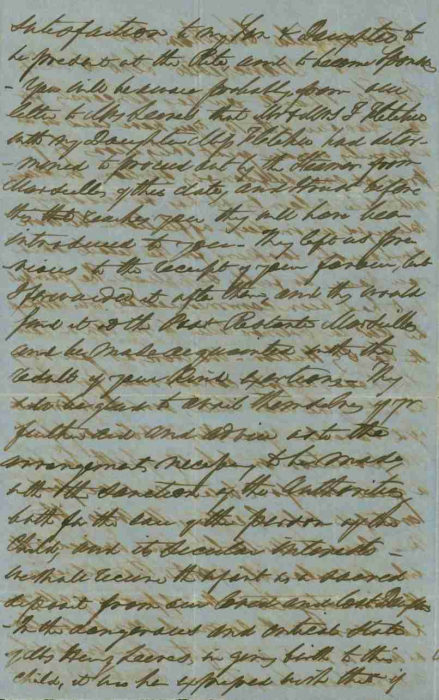 satisfaction to my Son & Daughter to
be present at the Rite and to become Sponsors
- You will be aware probably from our
letter to Mrs that Mr & Mrs J Fletcher
with my Daughter Miss Fletcher had deter-
-mined to proceed out by the Steamer from
Marseilles of this date, and I trust before
this reaches you they will have been
introduced to you - They left us pre-
vious to the receipt of your favour, but
I forwarded it after them, and they would
find it at the Post Restante Marseilles
and be made acquainted with the
result of your kind exertions - They
will be glad to avail themselves of your
further aid and advice as to the
arrangements necessary to be made,
with the sanction of the Authorities
both for the care of the person of the
Child, and its secular interests -
We shall receive the Infant as a sacred
deposit from our loved and lost Daughter
- In the dangerous and critical state
of Mrs in giving birth to this
child, it was he expressed wish that if